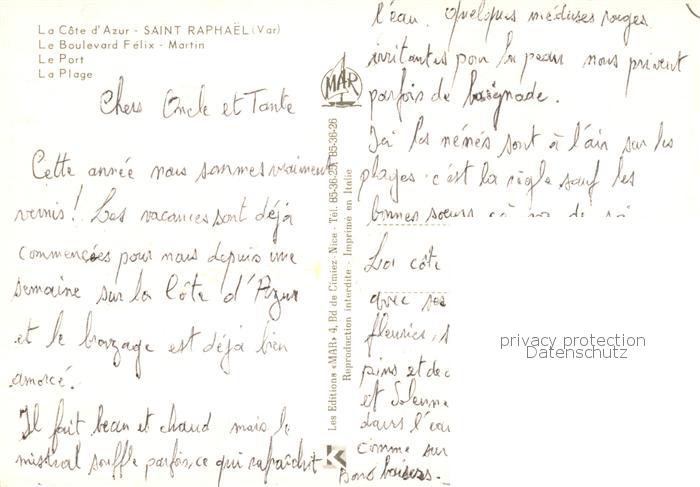 La Côte d'Azur - SAINT RAPHAËL (Var)
Le Boulevard Félix - Martin
Le Port
La Plage
Chers Oncle et Tante
Cette année nous sommes vraiment
vernis! Les vacances sont déjà
commencées pour nous depuis une
semaine sur la Côte d'Azur
et le bronzage est déjà bien
amorcé.
Il fait beau et chaud mais le
mistral souffle parfois, ce qui rafraîchit
MAR
Les Editions «MAR» 4, Bd de Cimiez - Nice - Tél. 85-36-25 85-36-26
Reproduction interdite - Imprimé en Italie
K
l'eau. Quelques méduses rouges
irritantes pour la peau nous privent
parfois de baignade.
Ici les nénés sont à l'air sur les
plages c'est la règle sauf les
bonnes soeurs
La côte
avec ses
fleuries,
pins et
et
dans l'eau
comme sur
Bons baisers.
privacy protection
Datenschutz